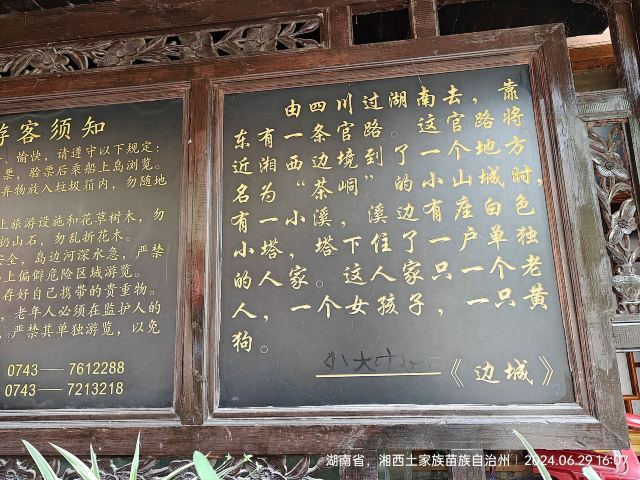 游客须知
、愉快,请遵守以下规定:
票,验票后乘船上岛游览。
弃物放入垃圾箱内,勿随地
上旅游设施和花草树木,勿
扔山石,勿乱折花木。
安全,岛边河深水急,严禁
上偏僻危险区域游览。
存好自己携带的贵重物。
,老年人必须在监护人的
,严禁其单独游览,以免
0743—7612288
0743—7213218
由四川过湖南去,靠
东有一条官路。这官路将
近湘西边境到了一个地方
名为“茶峒”的小山城时,
有一小溪,溪边有座白色
小塔,塔下住了一户单独
的人家。这人家只一个老
人,一个女孩子,一只黄
狗。
——《边城》
湖南省,湘西土家族苗族自治州 | 2024.06.29 16:07